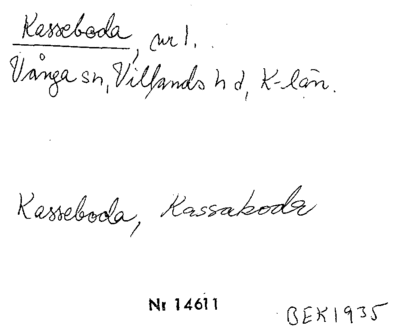 Kasseboda, nr 1.
Vånga sn, Villands hd, K-län.
Kasseboda, Kassaboda
Nr 14611
BEK1935